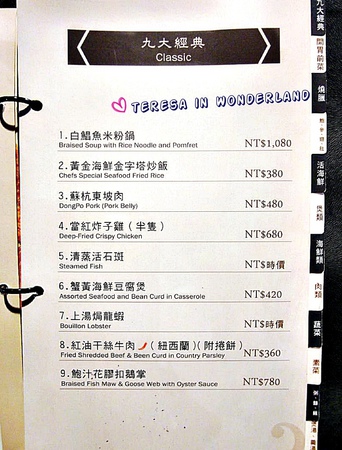 九大經典
Classic
TERESA IN WONDERLAND
1.白鯧魚米粉鍋
Braised Soup with Rice Noodle and Pomfret
NT$1,080
2.黃金海鮮金字塔炒飯
Chefs Special Seafood Fried Rice
NT$380
3.蘇杭東坡肉
DongPo Pork (Pork Belly)
NT$480
4.當紅炸子雞(半隻)
Deep-Fried Crispy Chicken
NT$680
5.清蒸活石斑
Steamed Fish
NT$時價
6.蟹黃海鮮豆腐煲
Assorted Seafood and Bean Curd in Casserole
NT$420
7.上湯焗龍蝦
Bouillon Lobster
NT$時價
8.紅油干絲牛肉(紐西蘭)(附捲餅)
Fried Shredded Beef & Been Curd in Country Parsley
NT$360
9.鮑汁花膠扣鵝掌
Braised Fish Maw & Goose Web with Oyster Sauce
NT$780
九大經典
開胃前菜
燒臘
活海鮮
煲類
海鮮類
肉類
蔬菜
素菜